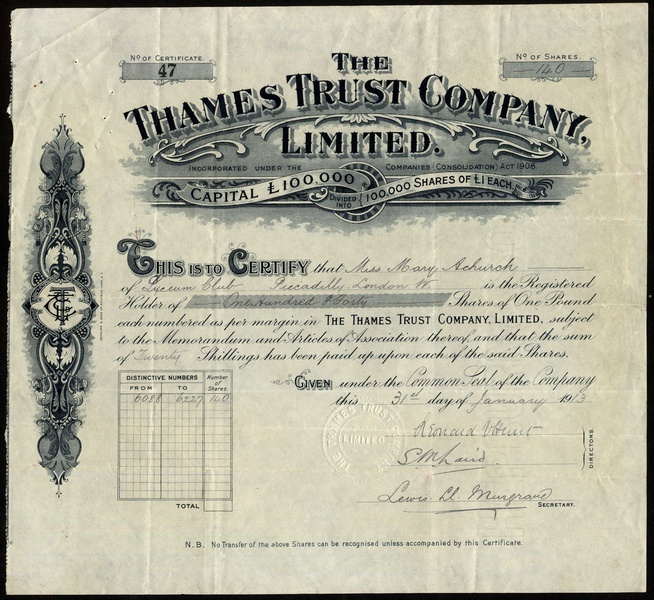 No OF CERTIFICATE.
47
No OF SHARES.
140
THE
THAMES TRUST COMPANY,
LIMITED.
INCORPORATED UNDER THE COMPANIES (CONSOLIDATION) ACT 1908.
CAPITAL £100,000 DIVIDED INTO 100,000 SHARES OF £1 EACH
THIS IS TO CERTIFY that Miss Mary Achurch
of Lyceum Club Piccadilly, London W is the Registered
Holder of One Hundred & Forty Shares of One Pound
each numbered as per margin in THE THAMES TRUST COMPANY, LIMITED, subject
to the Memorandum and Articles of Association thereof, and that the sum
of Twenty Shillings has been paid up upon each of the said Shares.
GIVEN under the Common Seal of the Company
this 31st day of January 1913
DISTINCTIVE NUMBERS Number of Shares
FROM TO
6088 6227 140
TOTAL
THE THAMES TRUST
LIMITED
DIRECTORS.
Lewis
SECRETARY.
N.B. No Transfer of the above Shares can be recognised unless accompanied by this Certificate.